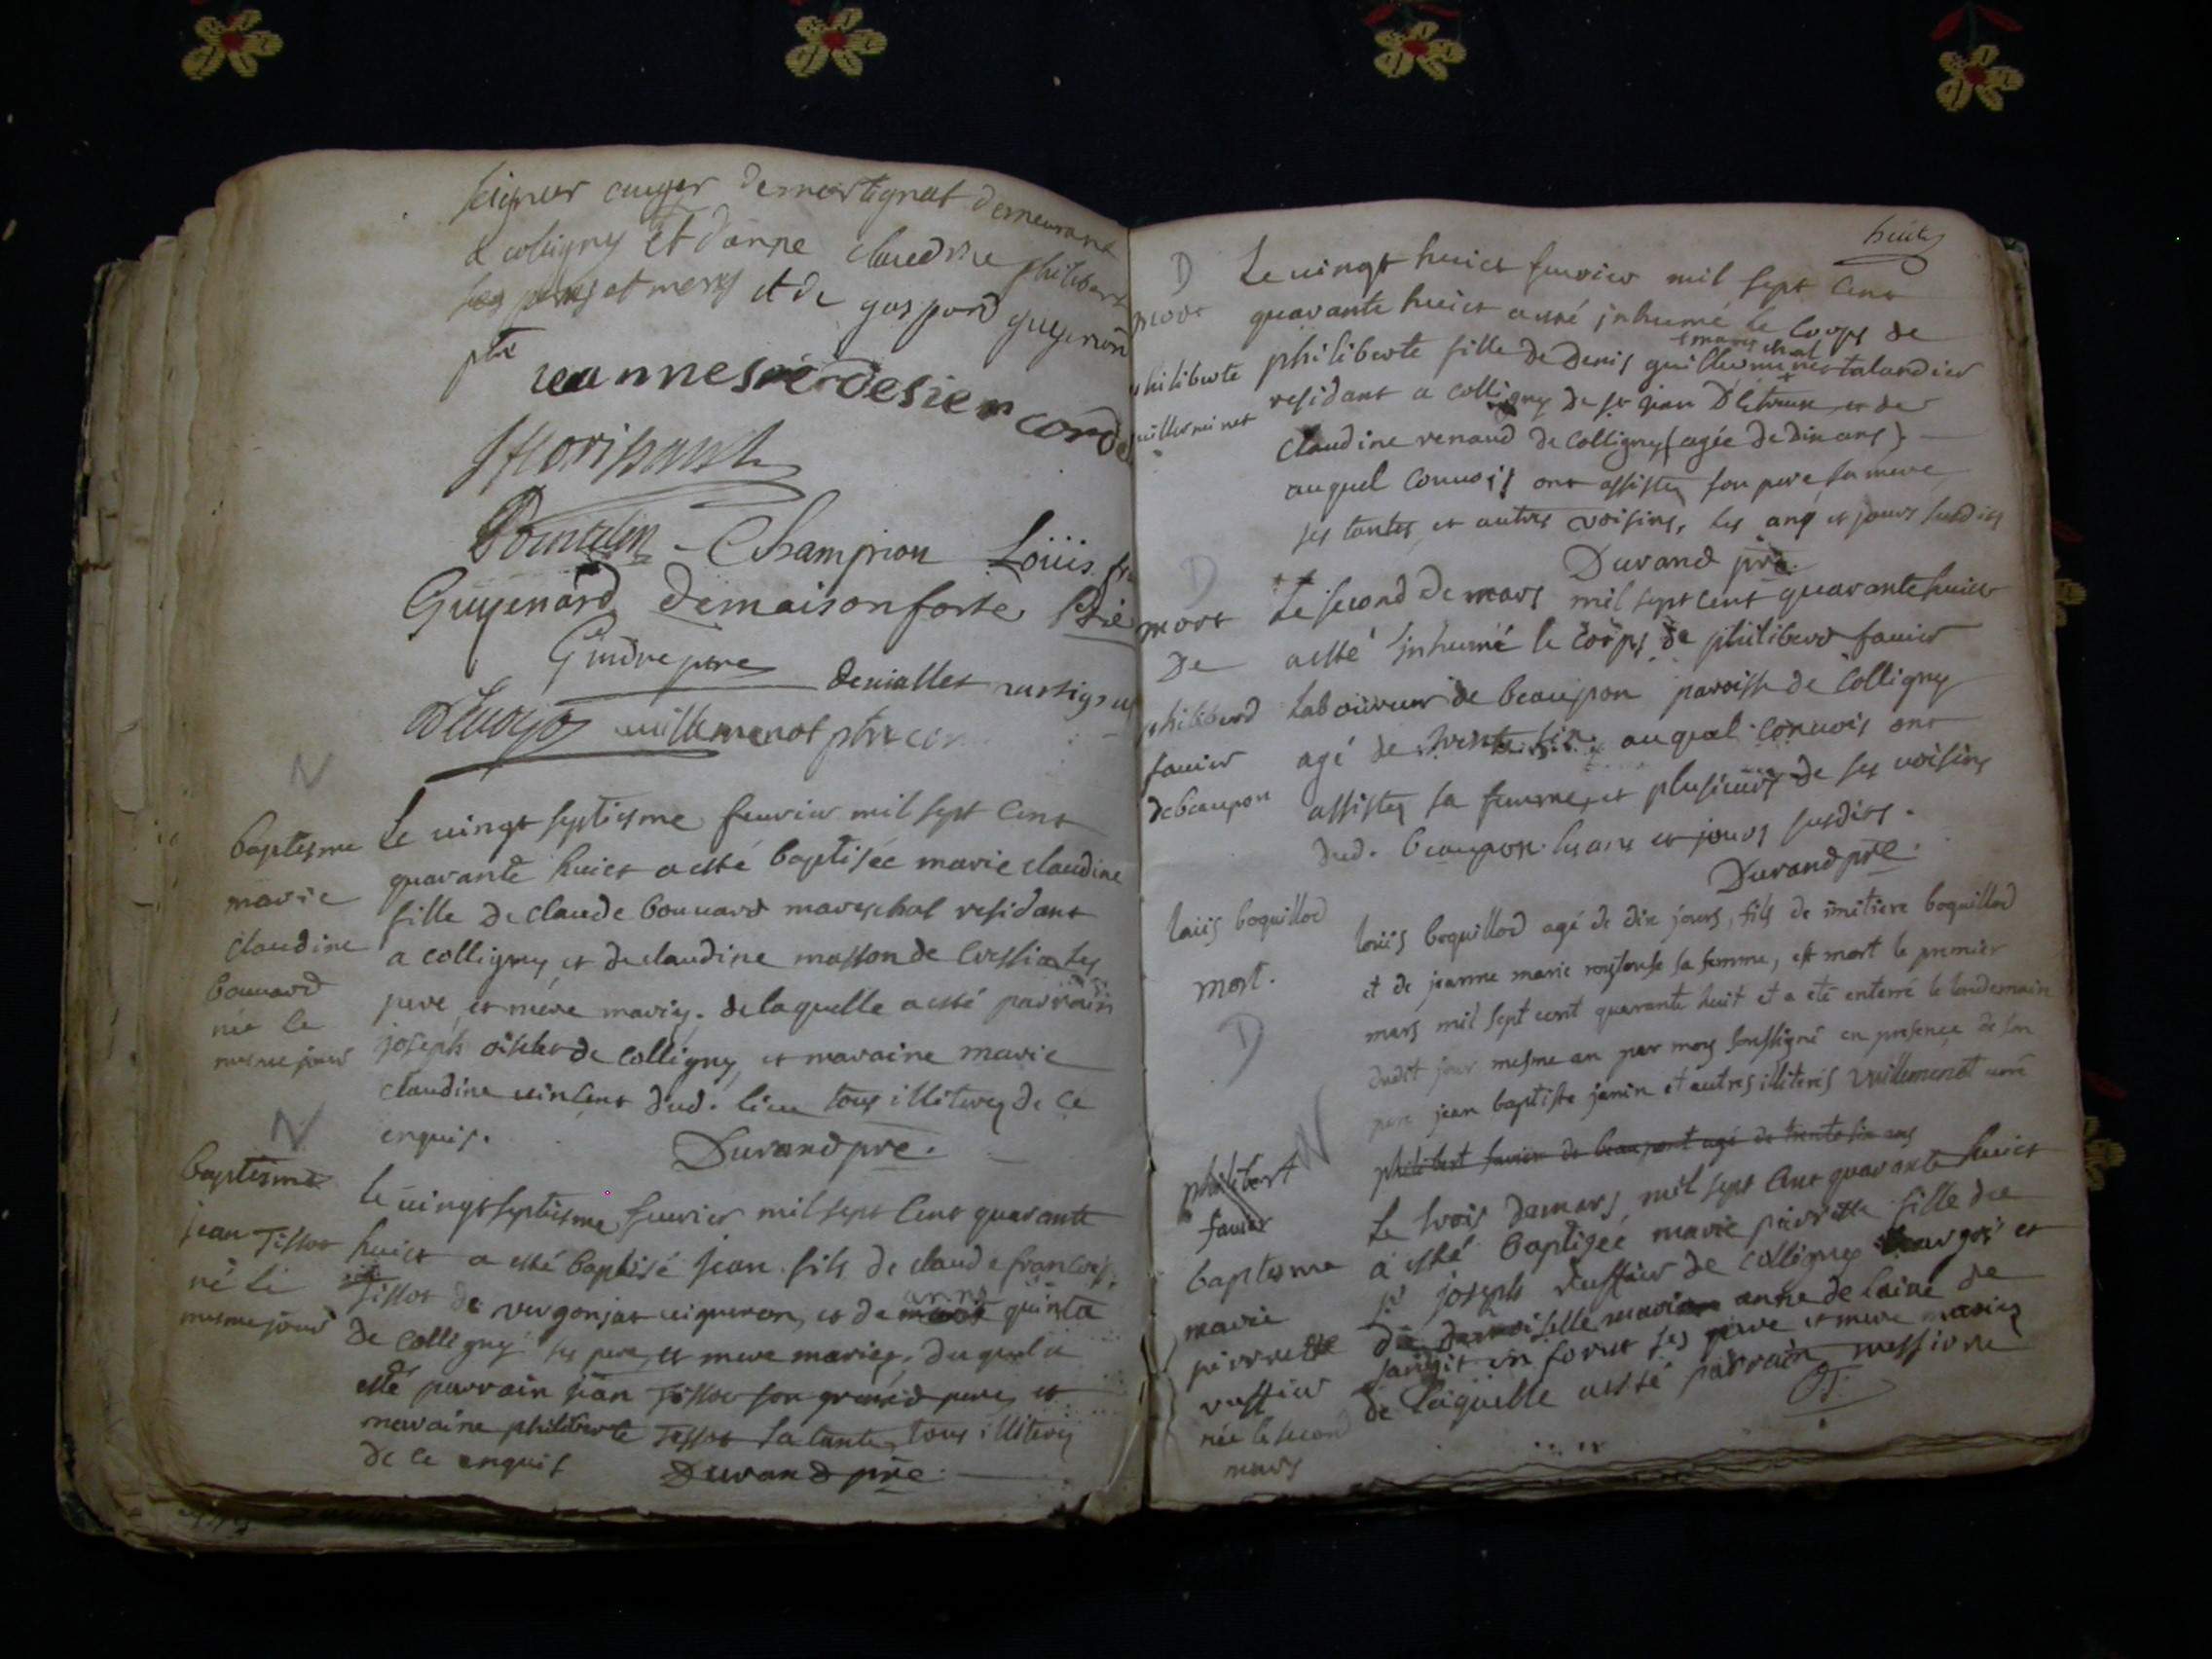 seigneur auger demartignat demeurant
a colligny et danne claudine philibert
ses peres et meres et de gaspard guyenon
ptre
jeanne desiré
Champion Loüis
Guyenard demaisonforte
Guidre pere
devialles martignat
vuillemenot ptre
N
baptesme
marie
claudine
bouuard
née le
mesme jour
Le uingt septiesme feurier mil sept cens
quarante huict a esté baptisée marie claudine
fille de claude bouuard mareschal residant
a colligny et de claudine masson de Cressia ses
pere et mére mariez. de laquelle a esté parrain
joseph de colligny et maraine marie
claudine uincent dud. lieu tous illiterez de ce
enquis.
Durand pre.
N
baptesme
jean Tissot
né le
mesme jour
le uingt septiesme feurier mil sept cens quarante
huict a esté baptisé jean fils de claude francois
Tissot de vergonjat uigneron, et de anne quinta
de colligny ses pere et mere mariez. duquel a
esté parrain jean Tissot son grand pere, et
maraine philiberte Tissot sa tante, tous illiterez
de ce enquis
Durand pre.
huit
D
mort
philiberte
uillerminet
Le uingt huict feurier mil sept cens
quarante huict a esté inhumé le corps de
+ mareschal
philiberte fille de denis guillerminet talandier
residant a colligny de st jean D'Etreux et de
claudine renaud de colligny (agée de dix ans).
auquel conuois ont assistez son pere sa mere
ses tantes et autres voisins, les ans et jours susdits
Durand pre.
D
mort
De
philiberd
fauier
de beaupon
Le second de mars mil sept cens quarante huict
a esté inhumé le corps de philiberd fauier
Laboureur de beaupon paroisse de colligny
agé de trente six. auqual conuois ont
assistez sa femme, et plusieurs de ses voisins
dud. beaupon. les ans et jours susdits.
Durand pre.
loüis boquillod
mort.
D
loüis boquillod agé de dix jours, fils de imitiere boquillod
et de jeanne marie sa femme, est mort le premier
mars mil sept cent quarante huit et a eté enterré le lendemain
dudit jour mesme an par moy soussigné en presence de son
pere jean baptiste janin et autres illiterés Vuillemenot curé
N
philibert
fauier
philibert favier de beaupont agé de trente six ans
baptesme
marie
pierrette
ruffier
née le second
mars
Le trois demars mil sept cens quarante huict
a esté baptizée marie pierrette fille du
sr joseph Ruffier de colligny bourgois et
de damoiselle anne de laine de
ses pere et mere mariez
de laquelle a esté parrain messire